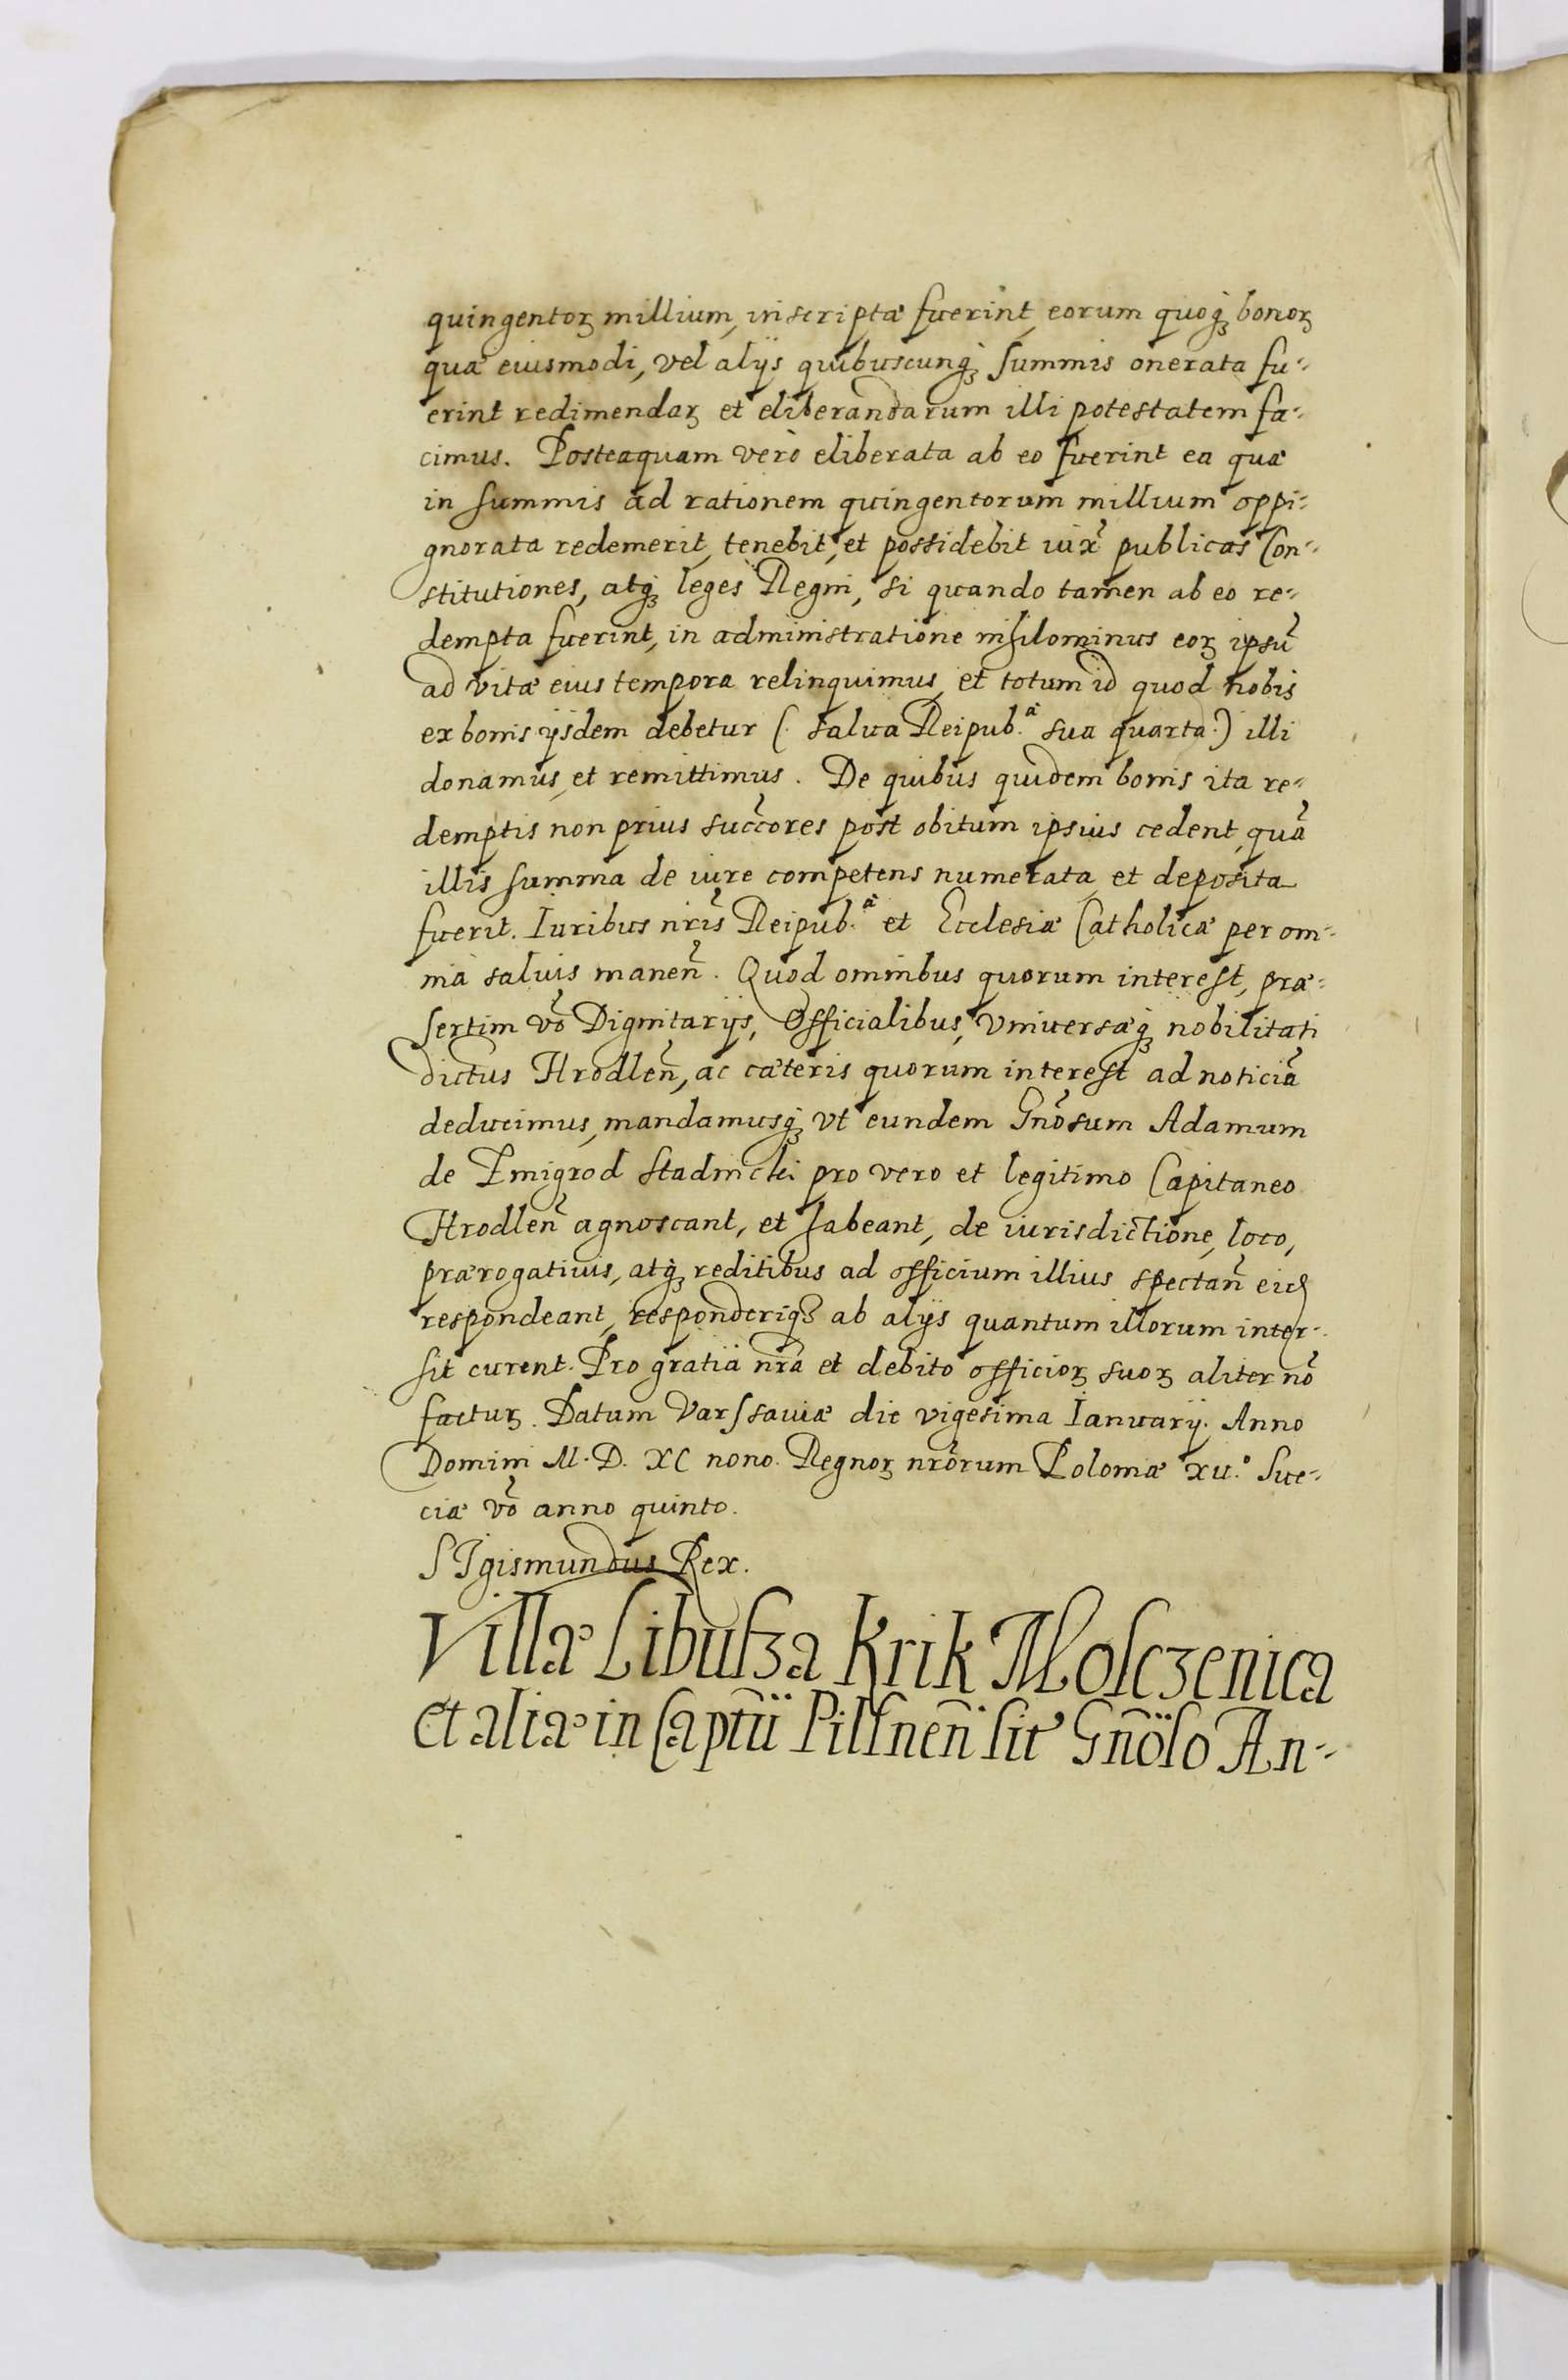 quingentoꝝ millium, inscriptæ fuerint, eorum quoqꝫ bonoꝝ
quæ eiusmodi, vel alijs quibuscunqꝫ summis onerata fu-
erint redimendaꝝ et eliberandarum illi potestatem fa-
cimus. Posteaquam verò eliberata ab eo fuerint ea quæ
in summis ad rationem quingentorum millium oppi-
gnorata redemerit, tenebit, et possidebit iux̃ publicas Con-
stitutiones, atqꝫ leges Regni, si quando tamen ab eo re-
dempta fuerint, in administratione nihilominus eoꝝ ipsũ
ad vitæ eius tempora relinquimus, et totum id quod nobis
ex bonis ijsdem debetur (. salua Reipub.ᵃ sua quarta .) illi
donamus, et remittimus. De quibus quidem bonis ita re-
demptis non prius succ̃ores post obitum ipsius cedent, quã
illis summa de iure competens numerata et deposita
fuerit. Iuribus nr̃is Reipub.ᵃ et Ecclesiæ Catholicæ per om-
nia saluis maneñ. Quod omnibus quorum interest, præ-
sertim võ Dignitarijs, Officialibus, Vniuersæqꝫ nobilitati
dictus Hrodleñ, ac cæteris quorum interest ad noticiã
deducimus, mandamusqꝫ vt eundem Gnõsum Adamum
de Zmigrod Stadnicki pro vero et legitimo Capitaneo
Hrodleñ agnoscant, et habeant, de iurisdictione, loco,
prærogatiuis, atqꝫ reditibus ad officium illius spectañ eid
respondeant, responderiqꝫ ab alijs quantum illorum inter-
sit curent. Pro gratia nr̃a et debito officioꝝ suoꝝ aliter nõ
factuꝝ. Datum Varssauiæ die vigesima Ianuarij. Anno
Domini M. D. XC nono. Regnoꝝ nrõrum Poloniæ xii.° Sue-
ciæ võ anno quinto.
SIgismundus Rex.
Villæ Libusza Krik Mosczenica
et aliæ in Captũ Pilsneñ sit̃ Gnõso An-